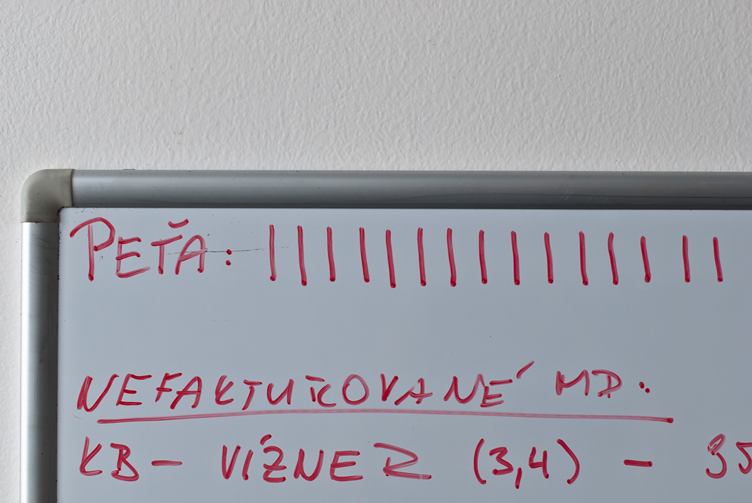 PEŤA: | | | | | | | | | | | | | | |
NEFAKTUROVANÉ MD:
KB - VÍZNER (3,4) -